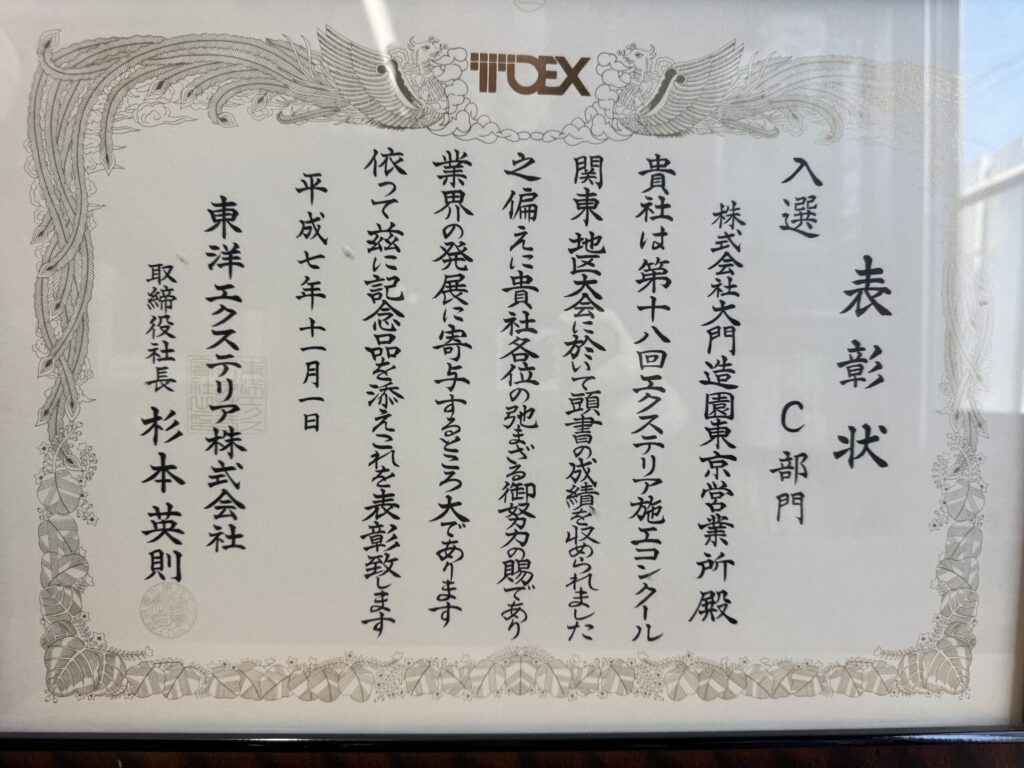 TOEX
表彰状
入選 C部門
株式会社大門造園東京営業所殿
貴社は第十八回エクステリア施工コンクール
関東地区大会に於いて頭書の成績を収められました
之偏えに貴社各位の弛まざる御努力の賜であり
業界の発展に寄与するところ大であります
依つて茲に記念品を添えこれを表彰致します
平成七年十一月一日
東洋エクステリア株式会社
取締役社長 杉本英則